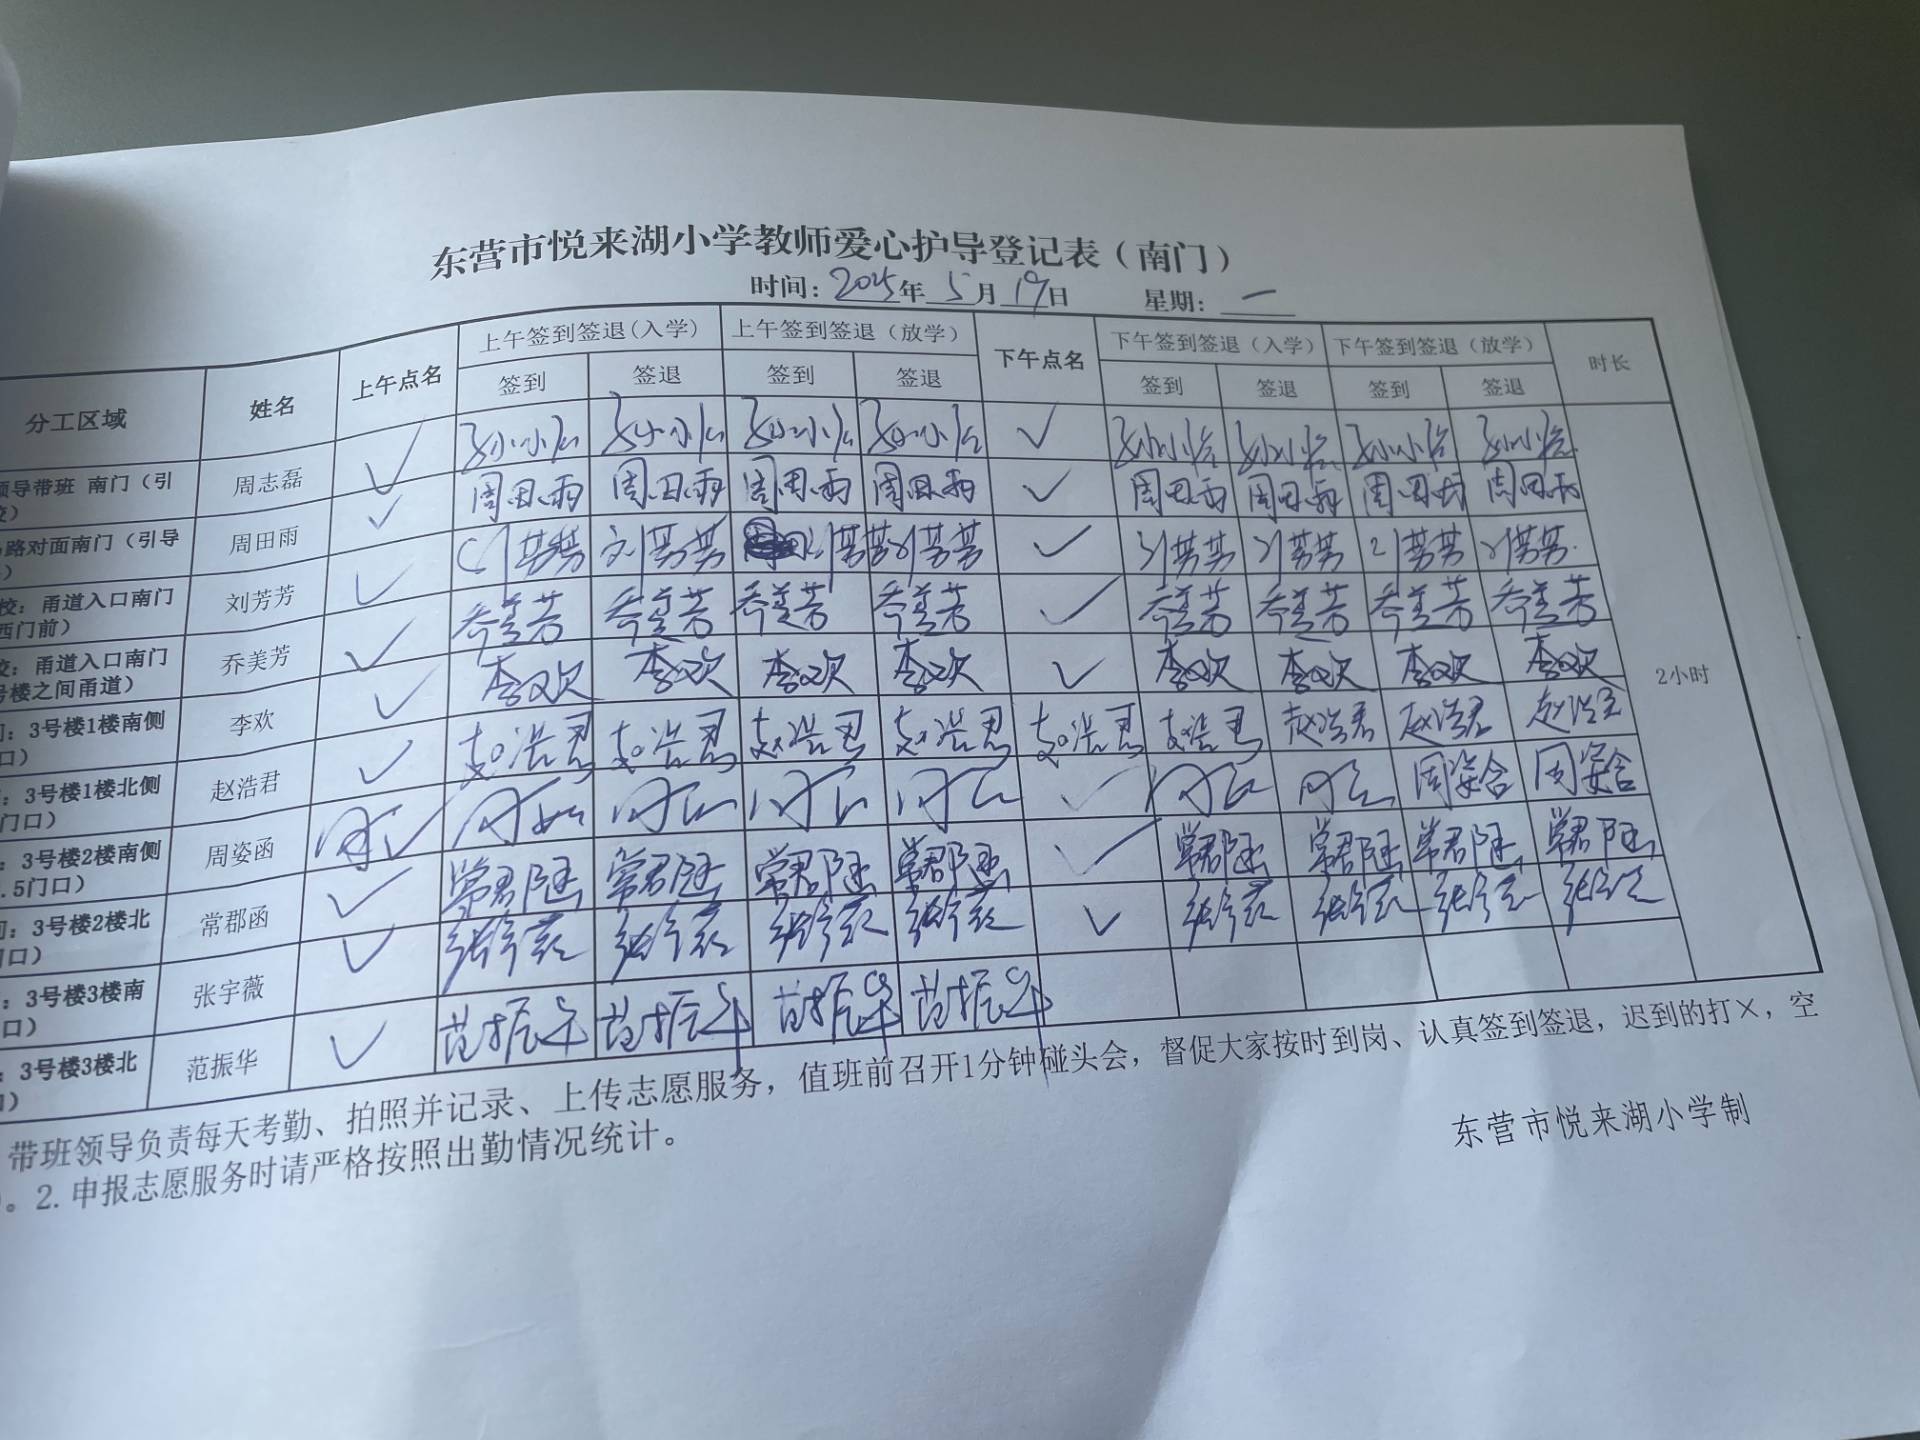 东营市悦来湖小学教师爱心护导登记表（南门）
时间：2025年 5月 19日 星期：一
分工区域 姓名 上午点名 上午签到签退(入学) 上午签到签退（放学） 下午点名 下午签到签退（入学） 下午签到签退（放学） 时长
签到 签退 签到 签退 签到 签退 签到 签退
领导带班 南门（引 周志磊 ✓ ✓
路对面南门（引导 周田雨 ✓ 周田雨 周田雨 周田雨 周田雨 ✓ 周田雨 周田雨 周田雨 周田雨
校：甬道入口南门 刘芳芳 ✓ 刘芳芳 刘芳芳 刘芳芳 刘芳芳 ✓ 刘芳芳 刘芳芳 刘芳芳 刘芳芳
西门前）
校：甬道入口南门 乔美芳 ✓ 乔美芳 乔美芳 乔美芳 乔美芳 ✓ 乔美芳 乔美芳 乔美芳 乔美芳
号楼之间甬道）
：3号楼1楼南侧 李欢 ✓ 李欢 李欢 李欢 李欢 ✓ 李欢 李欢 李欢 李欢 2小时
口）
：3号楼1楼北侧 赵浩君 ✓ 赵浩君 赵浩君 赵浩君 赵浩君 赵浩君 赵浩君 赵浩君 赵浩君 赵浩君
门口）
：3号楼2楼南侧 周姿函 ✓ ✓ 周姿含 周姿含
.5门口）
：3号楼2楼北 常郡函 ✓ 常君函 常君函 常君函 常君函 ✓ 常君函 常君函 常君函 常君函
口）
：3号楼3楼南 张宇薇 ✓ 张宇薇 张宇薇 张宇薇 张宇薇 ✓ 张宇薇 张宇薇 张宇薇 张宇薇
口）
：3号楼3楼北 范振华 ✓ 范振华 范振华 范振华 范振华
带班领导负责每天考勤、拍照并记录、上传志愿服务，值班前召开1分钟碰头会，督促大家按时到岗、认真签到签退，迟到的打×，空
。2.申报志愿服务时请严格按照出勤情况统计。
东营市悦来湖小学制